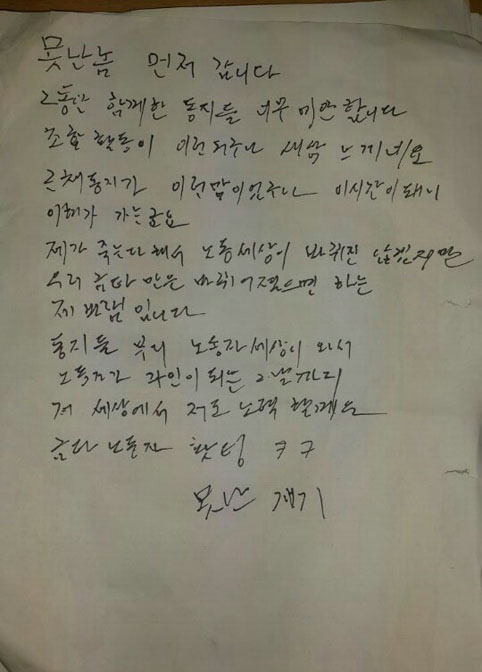 못난놈 먼저 갑니다
그동안 함께한 동지들 너무 미안합니다
조합활동이 이런되구나 새삼 느끼네요
근채동지가 이런맘이었구나 이시간이돼니
이해가 가는군요
제가 죽는다해서 노동세상이 바뀌진 않겠지만
우리 금타 만은 바뀌어졌으면 하는
제 바램 입니다
동지들 부디 노동자세상이 와서
노동자가 주인이 되는 그날까지
저 세상에서 저도 노력 할께요
금타 노동자 홧팅 ㅋㅋ
못난 재기